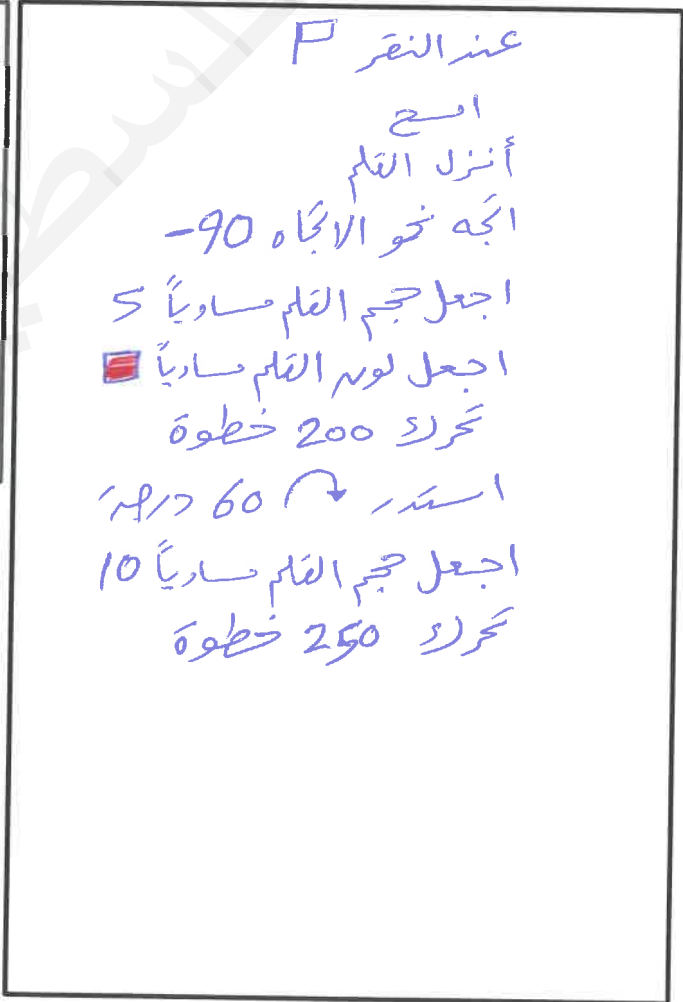 عند النقر
امسح
أنزل القلم
اتجه نحو الاتجاه 90-
اجعل حجم القلم مساوياً 5
اجعل لون القلم مساوياً
تحرك 200 خطوة
استدر 60 درجة
اجعل حجم القلم مساوياً 10
تحرك 250 خطوة